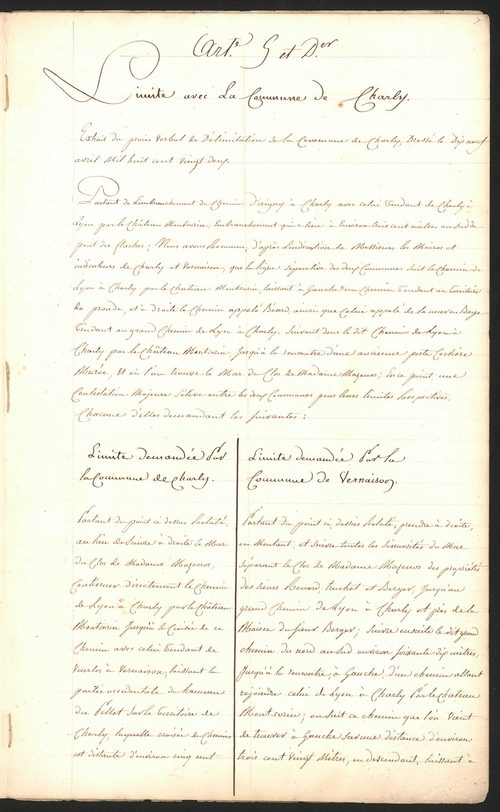 Art.e 5 et D.er
Limite avec La Commune de Charly.
Extrait du procès Verbal de Délimitation de la Commune de Charly, Dressé le Dix neuf
avril Mil huit cent vingt deux.
Partant de L'embranchement du Chemin D'irigny à Charly avec celui tendant de Charly à
Lyon par le Château Montcorin, Embranchement qui a lieu à Environ trois cent mètres au sud du
pont des flaches; Nous avons Reconnu, d'après L'indication de Messieurs les Maires et
indicateurs de Charly et Vernaison, que la ligne séparative des deux Communes suit le Chemin de
Lyon à Charly par le Chateau Montcorin, laissant à Gauche un Chemin tendant au territoire
de pronde, et à Droite le Chemin appelé Biard, ainsi que Celui appelé de la
tendant au grand Chemin de Lyon à Charly. Suivant donc le dit Chemin de Lyon à
Charly par le Château Montcorin jusqu'à la rencontre d'une ancienne porte Cochère
Murée, Et où l'on trouve le Mur du Clos de Madame Mazenos; En ce point une
Contestation Majeure s'élève entre les deux Communes pour leurs limites Respectives,
Chacune d'elles demandant les suivantes:
Limite demandée Par
la Commune de Charly.
Partant du point ci dessus Relaté,
au lieu de Suivre à droite le Mur
du Clos de Madame Mazenos,
Continuer directement le Chemin
de Lyon à Charly par le Château
Montcorin Jusqu'à la Croisée de ce
Chemin avec celui tendant de
Vourles à Vernaison, laissant la
partie occidentale du hameau
du Pellet sur le territoire de
Charly, laquelle croisée de Chemins
est distante d'environ cinq cent
Limite demandée Par la
Commune de Vernaison.
Partant du point ci dessus Relaté, prendre à droite,
en Montant, et suivre toutes les Sinuosités du Mur
séparant le Clos de Madame Mazenos des propriétés
des sieurs Renard, truchet et Berger, Jusqu'au
grand Chemin de Lyon à Charly et près de la
Maison du sieur Berger; suivre ensuite le dit grand
chemin du nord au sud environ soixante dix mètres,
Jusqu'à la rencontre, à Gauche, d'un chemin allant
rejoindre celui de Lyon à Charly Par le Chateau
Montcorin; on suit ce chemin que l'on vient
de trouver à Gauche sur une distance d'environ
trois cent vingt Mètres, en descendant, laissant à